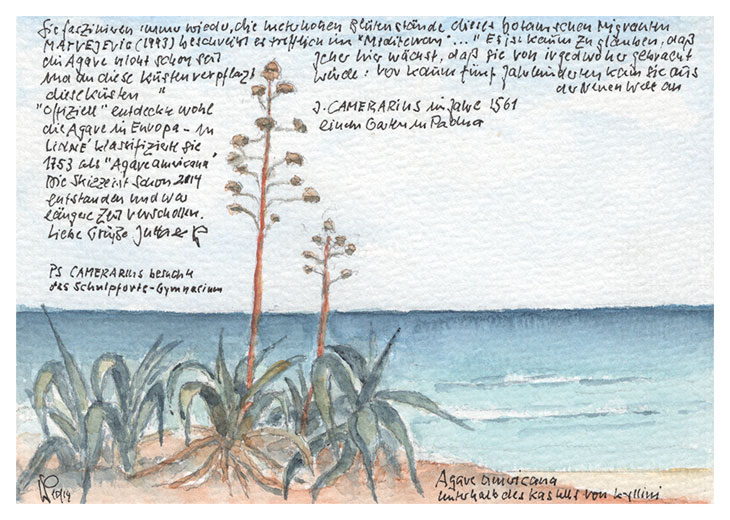 Sie faszinieren immer wieder, die meterhohen Blütenstände dieses botanischen Migranten
MATVEJEVIĆ (1993) beschreibt es trefflich im "Mediterran..." "Es ist kaum zu glauben, daß
die Agave nicht schon seit jeher hier wächst, daß sie von irgendwoher gebracht
und an diese Küsten verpflanzt wurde: vor kaum fünf Jahrhunderten kam sie aus
diese Küsten " der Neuen Welt an
"Offiziell" entdeckte wohl J. CAMERARIUS im Jahre 1561
die Agave in Europa – in einem Garten in Padua
LINNÉ klassifizierte sie
1753 als "Agave americana"
Die Skizze ist schon 2014
entstanden und war
längere Zeit verschollen.
Liebe Grüße
PS CAMERARIUS besuchte
das Schulpforta-Gymnasium
10/14
Agave americana
unterhalb des Kastells von Kyllini